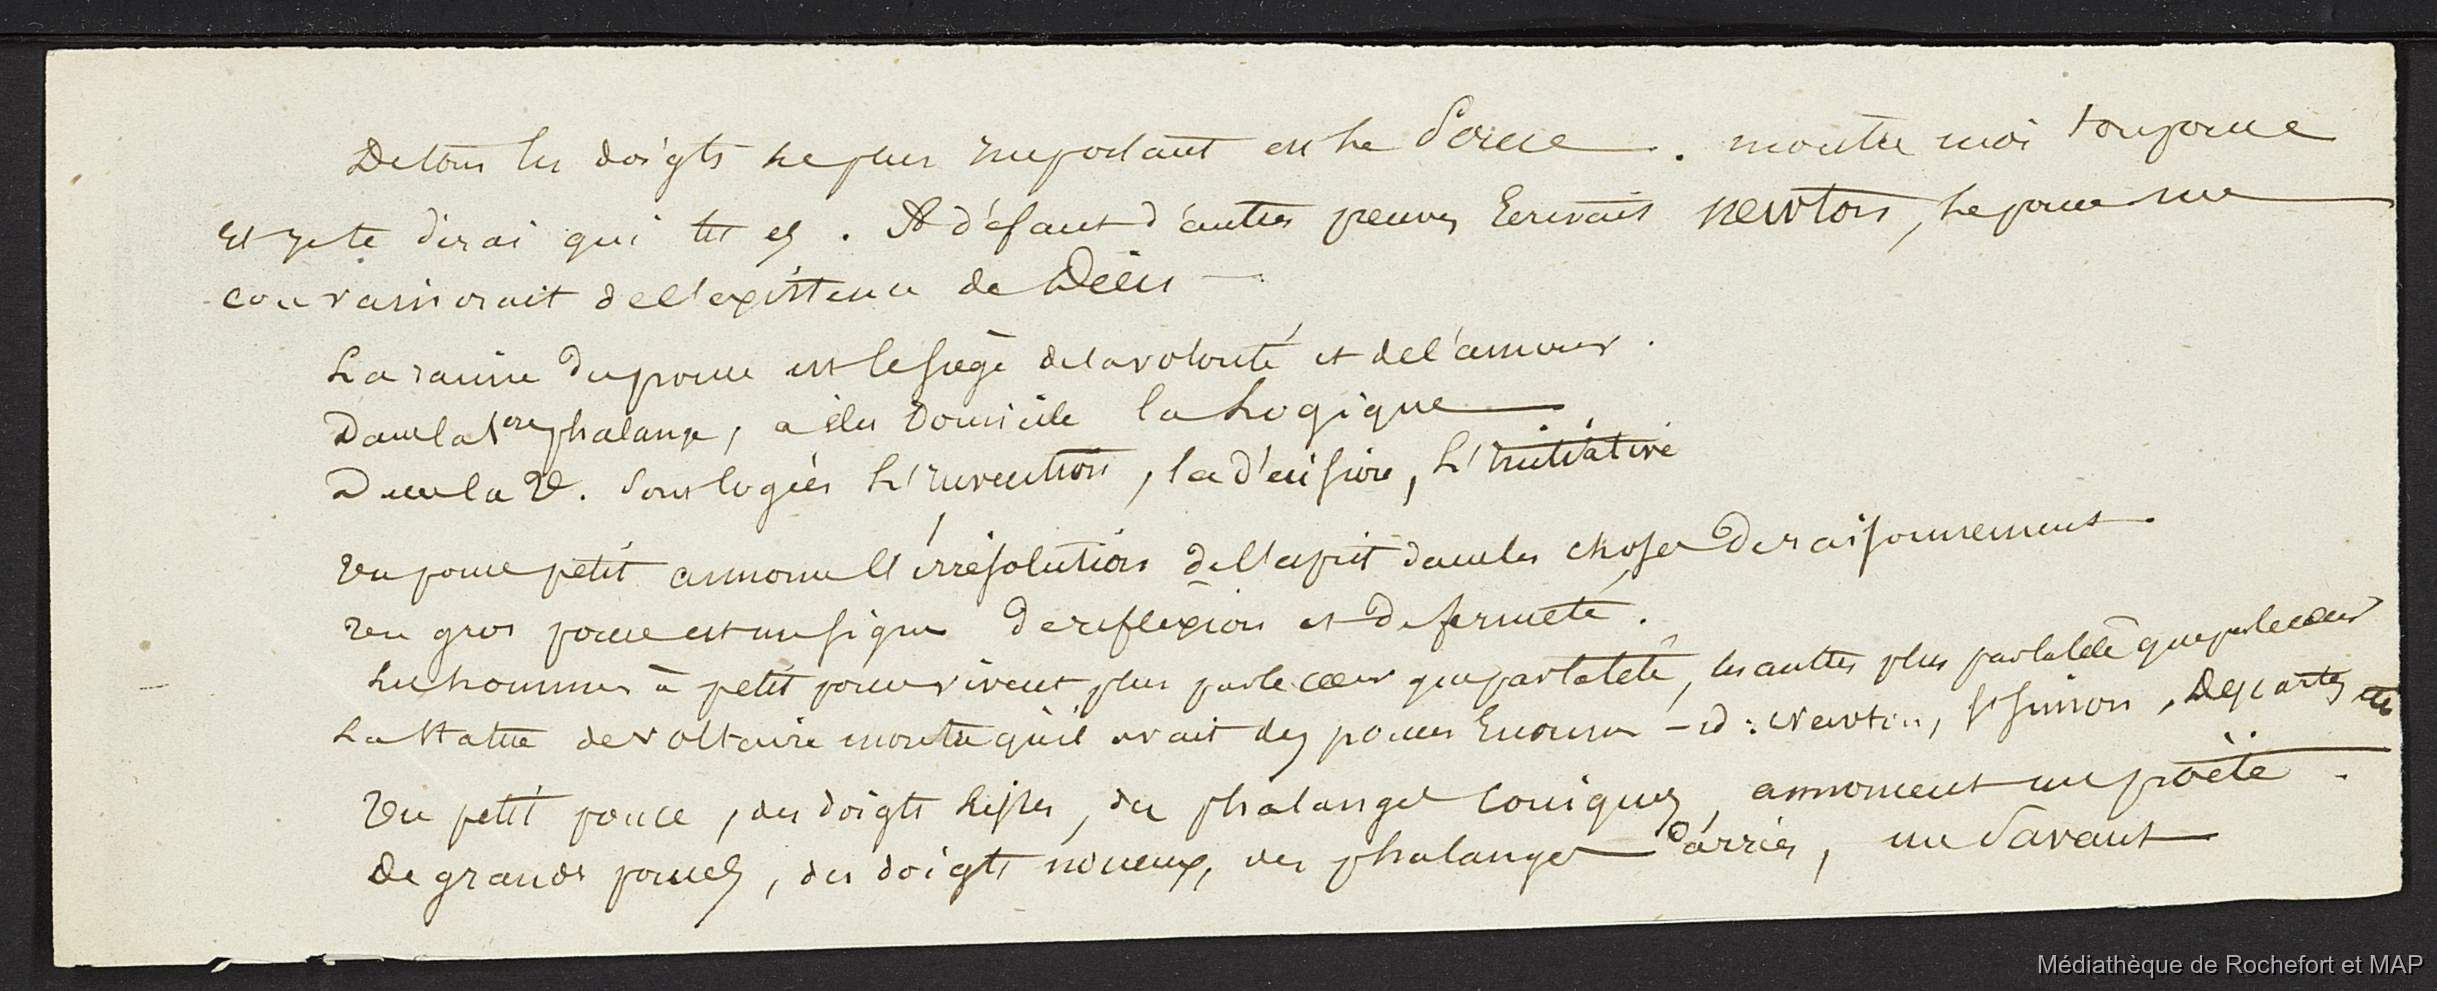 De tous les doigts le plus important est le Pouce. montre moi ton pouce
et je te dirai qui tu es. A défaut d'autres preuves Ecrivait Newton, le pouce me
convaincrait de l'existence de Dieu —
La racine du pouce est le siège de la volonté et de l'amour.
Dans la 1ere phalange, a élu domicile la Logique
Dans la 2e. sont logées L'invention, la décision, L'initiative
Un pouce petit annonce l'irrésolution de l'esprit dans les choses de raisonnement.
Un gros pouce est un signe de reflexion et de fermeté.
Les hommes à petit pouce vivent plus par le cœur que par la tête, les autres plus par la tête que par le cœur
La statue de Voltaire montre qu'il avait des pouces Enormes – id : Newton, St Simon, Descartes etc
Un petit pouce, des doigts lisses, des phalanges coniques, annoncent un poëte.
De grands pouces, des doigts noueux, des phalanges carrées, un Savant
Médiathèque de Rochefort et MAP